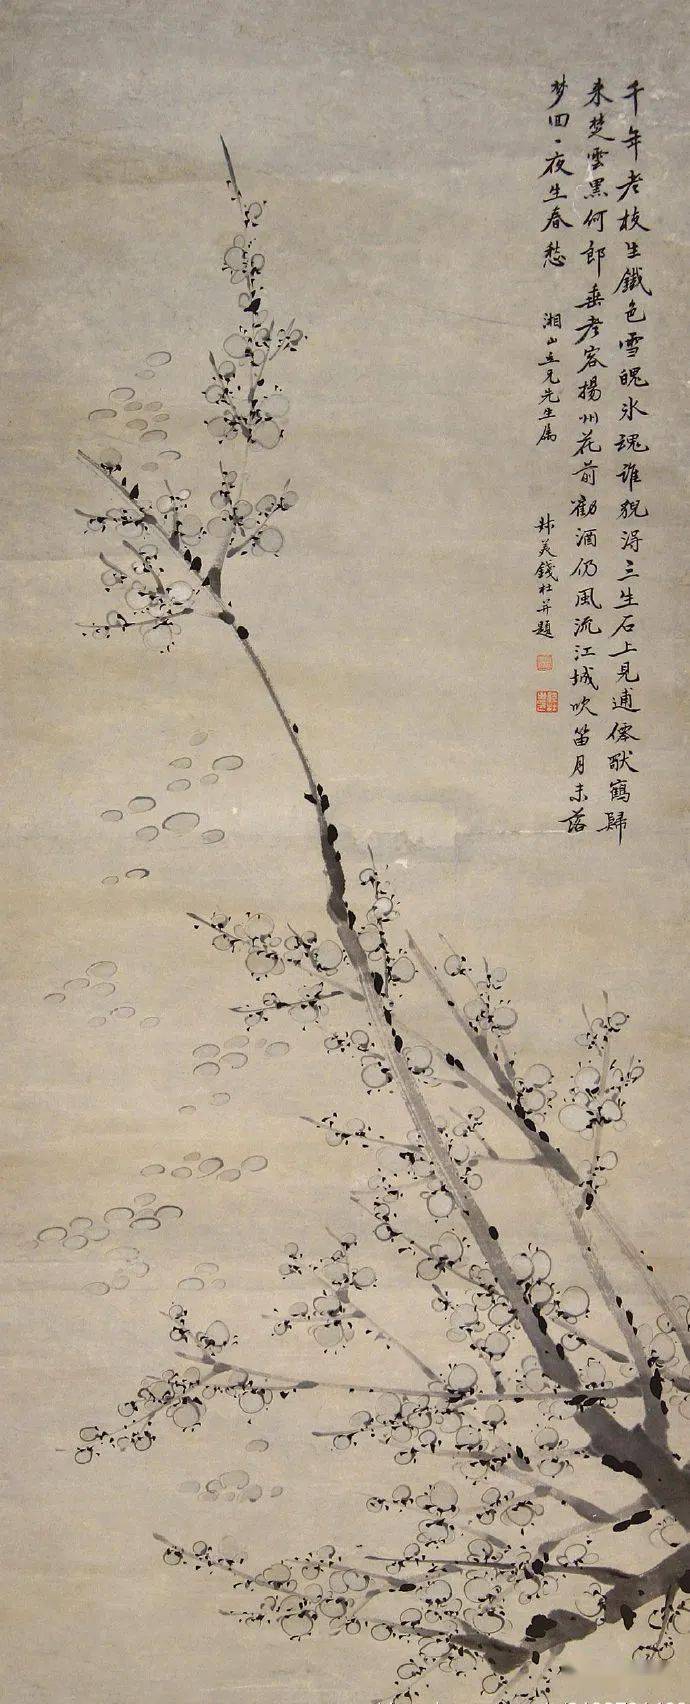 千年老枝生鐵色雪魄氷魂誰貌得三生石上見逋僊獃鶴歸
来楚雲黑何郎垂老客揚州花前勸酒仍風流江城吹笛月未落
梦回一夜生春愁
湘山五兄先生属
叔美錢杜并題